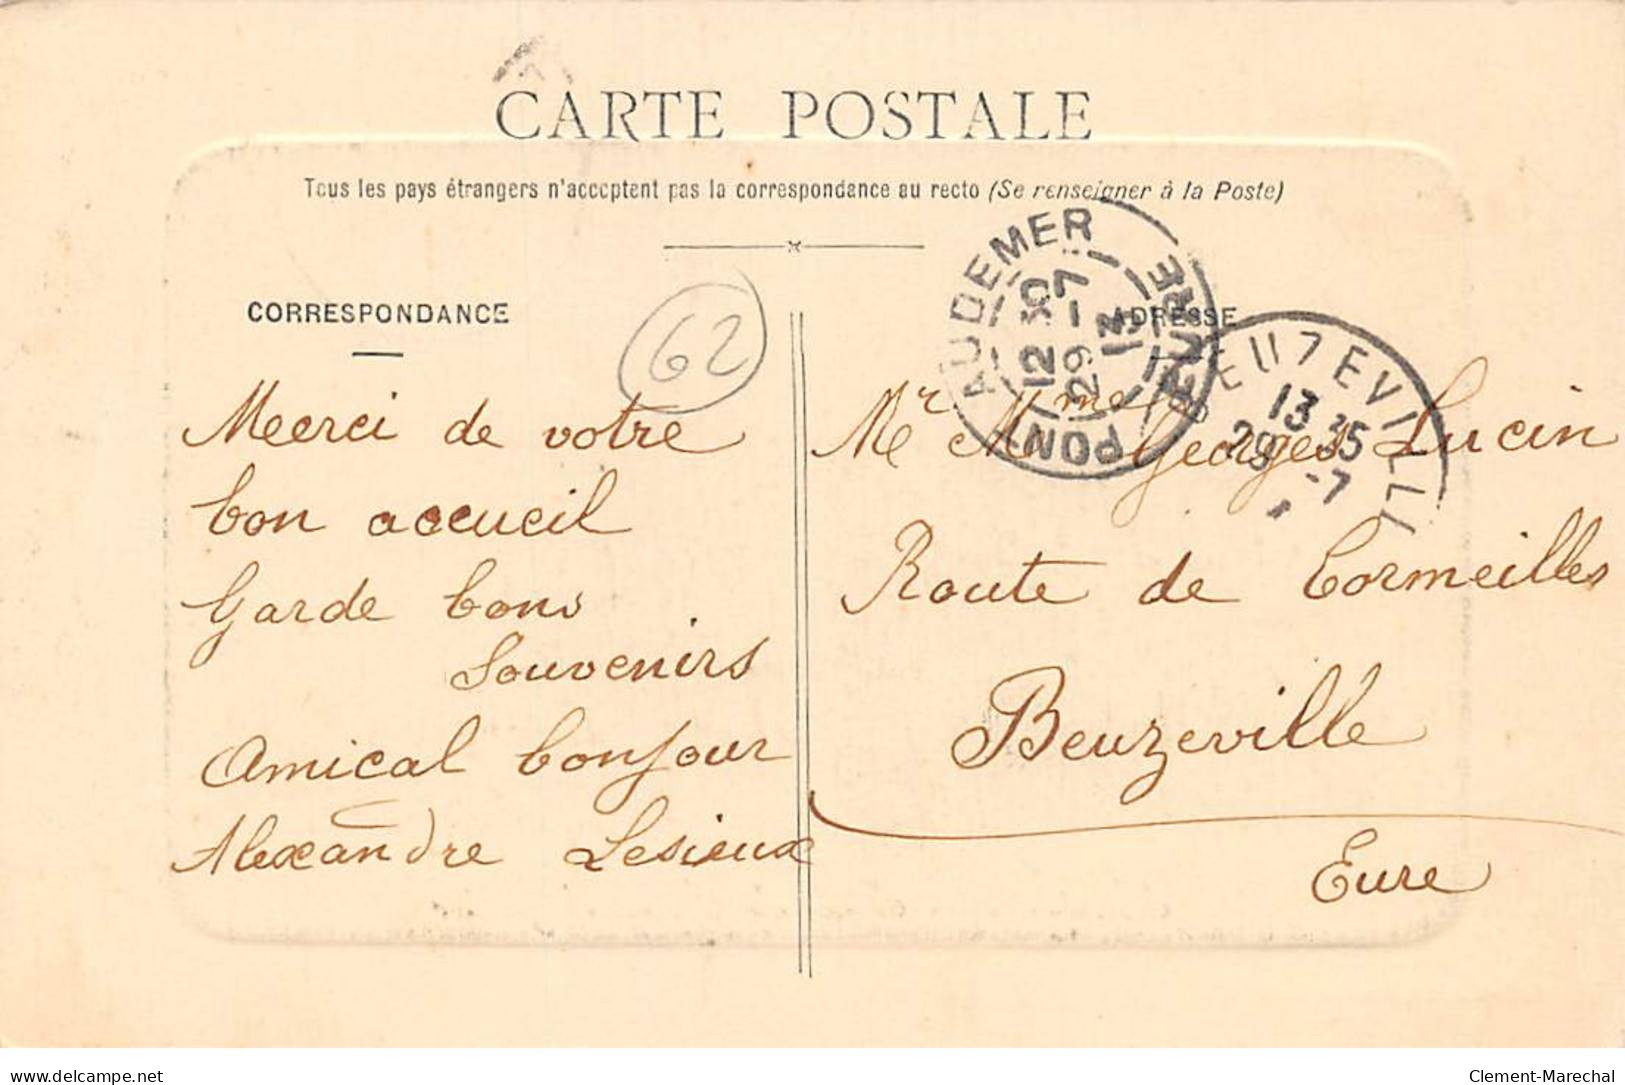 CARTE POSTALE
Tous les pays étrangers n'acceptent pas la correspondance au recto (Se renseigner à la Poste)
CORRESPONDANCE
62
Meerci de votre
bon accueil
Garde bons
Souvenirs
Amical bonjour
Alexandre Lesieux
PONT AUDEMER EURE
12 30
29 -7
13
ADRESSE
BEUZEVILLE
13 35
29 -7
Mr Mme Georges Lucin
Route de Cormeilles
Beuzeville
Eure
www.delcampe.net
Clement-Marechal